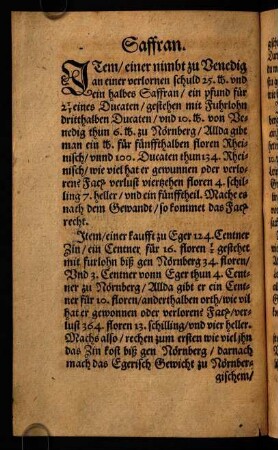 Saffran.
ITem/einer nimbt zu Venedig
an einer verlornen schuld 25. ℔. vnd
ein halbes Saffran / ein pfund für
eines Ducaten/gestehen mit Fuhrlohn
dritthalben Ducaten/ vnd 10. ℔. von Ve-
nedig thun 6. ℔. zu Nörnberg/ Allda gibt
man ein ℔. für fünffthalben floren Rhei-
nisch/vnnd 100. Ducaten thum 134. Rhei-
nisch/ wie viel hat er gewunnen oder verlo-
ren? Facit verlust viertzehen floren 4. schil-
ling 7. heller/ vnd ein fünfftheil. Mache es
nach dem Gewandt/ so kommet das Facit
recht.
Item/einer kaufft zu Eger 124. Centner
Zin/ ein Centner für 16. floren gestehet
mit furlohn biß gen Nörnberg 34. floren/
Vnd 3. Centner vonn Eger thun 4. Cent-
ner zu Nörnberg/ Allda gibt er ein Cent-
ner für 10. floren/anderthalben orth/wie vil
hat er gewonnen oder verloren? Facit/ver-
lust 364. floren 13. schilling/vnd vier heller.
Machs also/ rechen zum ersten wie viel jhn
das Zin kost biß gen Nörnberg/ darnach
mach das Egerisch Gewicht zu Nörnber-
gischem/